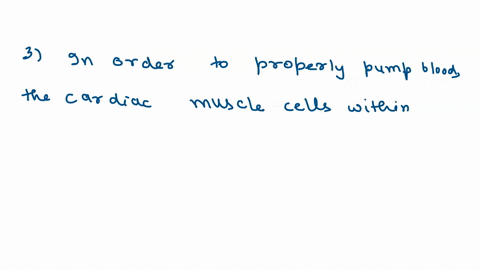 3) In order to properly pump blood,
the cardiac muscle cells within